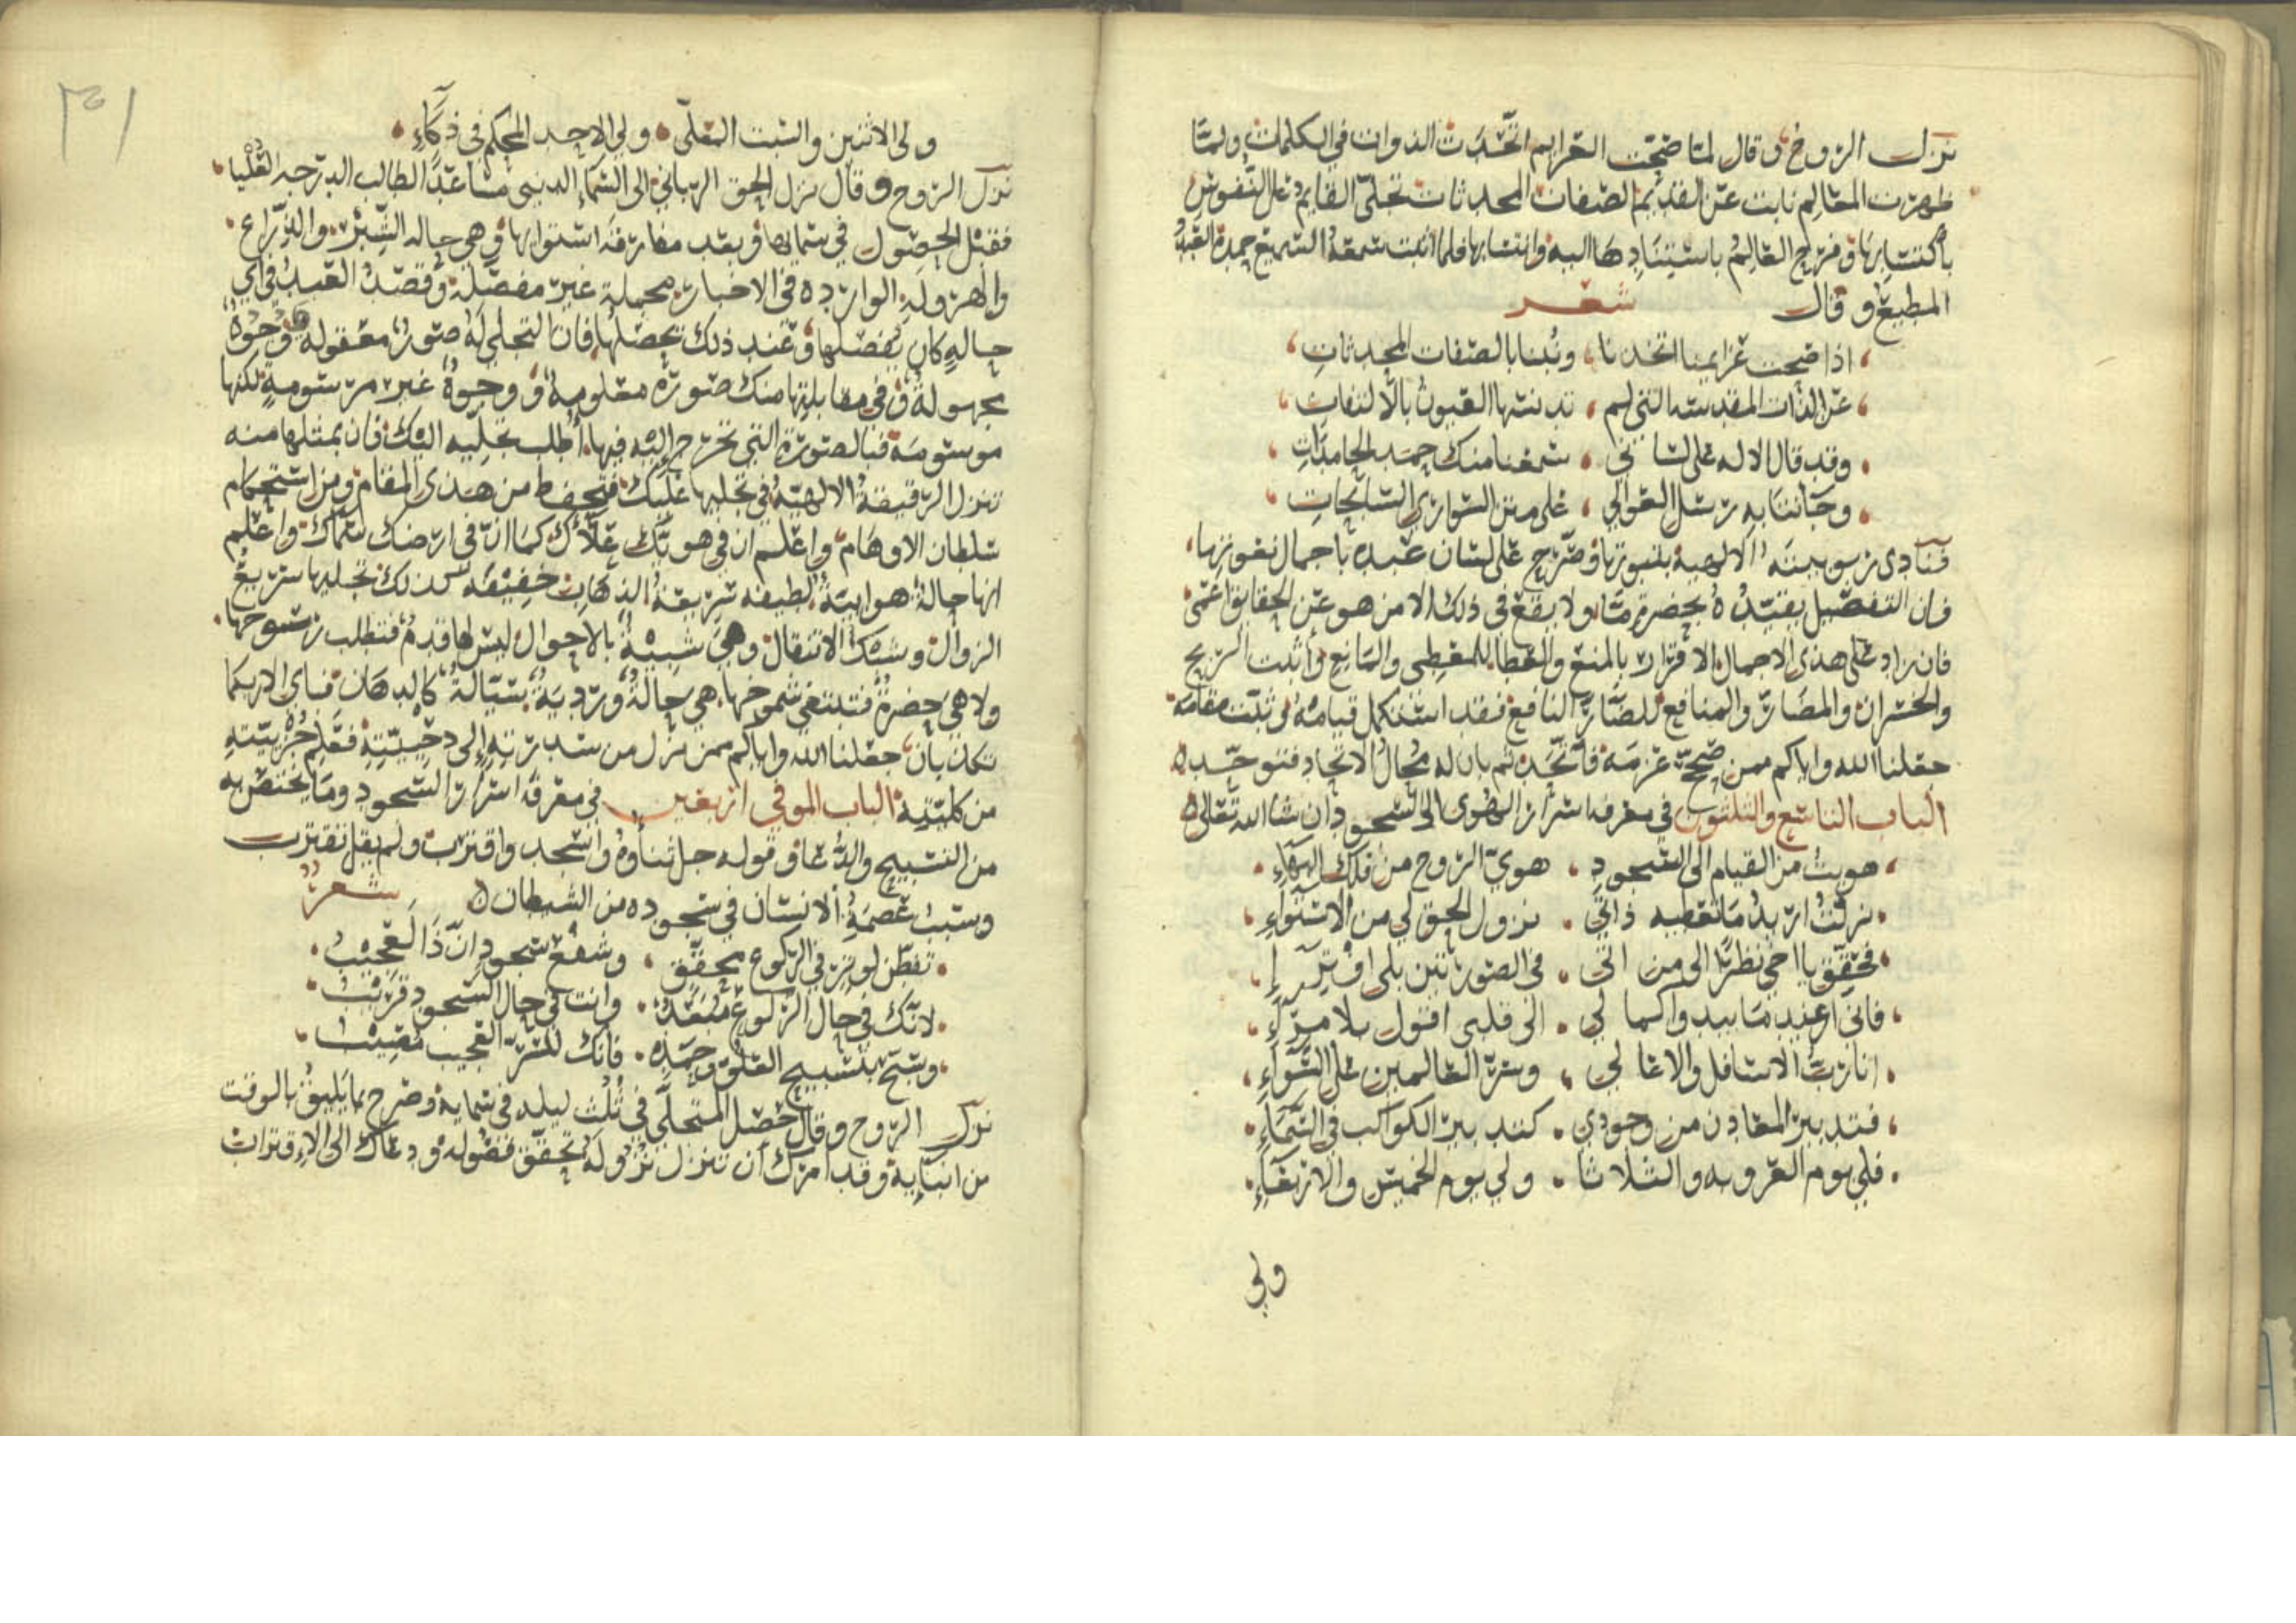 نزل الروح وقال لما صحت العزايم اتحدت الذوات في الكلمات ولما
ظهرت المعالم نابت عن القديم الصفات المحدثات تجلى القايم على النفوس
باكتسابها وفرح العالم باستنادها اليه وانتسابها فلما اثبت سمعه السميع حمد العبد
المطيع وقال شعر
اذا صحت عزايمنا اتحدنا ونبنا بالصفات المحدثات
عن الذات المقدسة التي لم تدنسها العيون بالالتفات
وقد قال الاله على لساني سمعنا منك حمد الحامدات
وجأتنا به رسل العوالي على متن السواري السابحات
فنادى ربوبيته الالهية بثبوتها وصرح على لسان عبده باجمال نعوتها
فان التفصيل يقيده بحضرة ما ولا يقع في ذلك الا من هو عن الحقايق اعمى
فان زاد على هذي الاجمال الاقرار بالمنع والعطا للمعطي والمانع وأثبت الربح
والخسران والمضار والمنافع للضار النافع فقد استكمل قيامه وثبت مقامه
جعلنا الله واياكم ممن صحح عزمه فاتحد ثم بان له مجال الاتحاد فتوحد
الباب التاسع والثلثون في معرفة اسرار الهوى الى السجود ان شا الله تعالى
هويت من القيام الى السجود هوي الروح من فلك البهاء
نزلت اريد ما تعطيه ذاتي نزول الحق لي من الاستواء
فحقق يا اخي نظرا الى من اتى في الصورتين بلى افترا
فاني عند ما يبدوا كما لي الى قلبي اقول بلا مراء
انا رب الاسافل والاعالي وسر العالمين على السواء
فتدبير المعادن من وجودي كتدبير الكواكب في السماء
فلي يوم العروبه والثلاثا ولي يوم الخميس والاربعاء
ولي
٣١
ولي الاثنين والسبت المعلى ولي الاحد المحكم في ذكاء
نزل الروح وقال نزل الحق الرباني الى السماء الدنيى مساعدا لطالب الدرجه العليا
فقبل الحصول في سمايها وبعد مفارقة استوايها وهي حاله الشبر والذراع
والهرولة الوارده في الاخبار مجملة غير مفصلة وقصد العبد في اي
حالة كان يفصلها وعند ذلك يحصلها فان التجلي له صور معقوله ووجوه
مجهولة وفي مقابلتها منك صورة معلومة ووجوه غير مرسومة لكنها
موسومة فبالصورة التي تخرج اليه فيها اطلب تجليه اليك فان بمثلها منه
تنزل الرقيقة الالهية في تجليها عليك فتحفظ من هذي المقام ومن استحكام
سلطان الاوهام واعلم ان في هويك علاك كما ان في ارضك سماك واعلم
انها حالة هوايية لطيفه سريعة الذهاب خفيفة كذلك تجليها سريع
الزوال وشيك الانتقال وهي شبيه بالاحوال ليس لها قدم فتطلب رسوخها
ولا هي حضرة فتبتغي شموخها هي حالة وردية سيالة كالدهان فباي الا ربكما
تكذبان جعلنا الله واياكم ممن نزل من سدرته الى دحيته فعلم جزييته
من كليته الباب الموفي اربعين في معرفة اسرار السجود وما يختص به
من التسبيح والدعا وقوله جل ثناوه واسجد واقترب ولم يقل تقترب
وسبب عصمة الانسان في سجوده من الشيطان شعر
تفطن لوتر في الركوع محقق وشفع سجود ان ذا لعجيب
لانك في حال الركوع مبعد وانت في حال السجود قريب
وسبح بتسبيح العلو وحمده فانك للسر العجيب مصيب
نزل الروح وقال حصل المتجلي في ثلث ليله في سمايه وصرح بما يليق بالوقت
من انبايه وقد امرك ان تنزل نزوله تحقق فصوله ودعاك الى الاقتراب